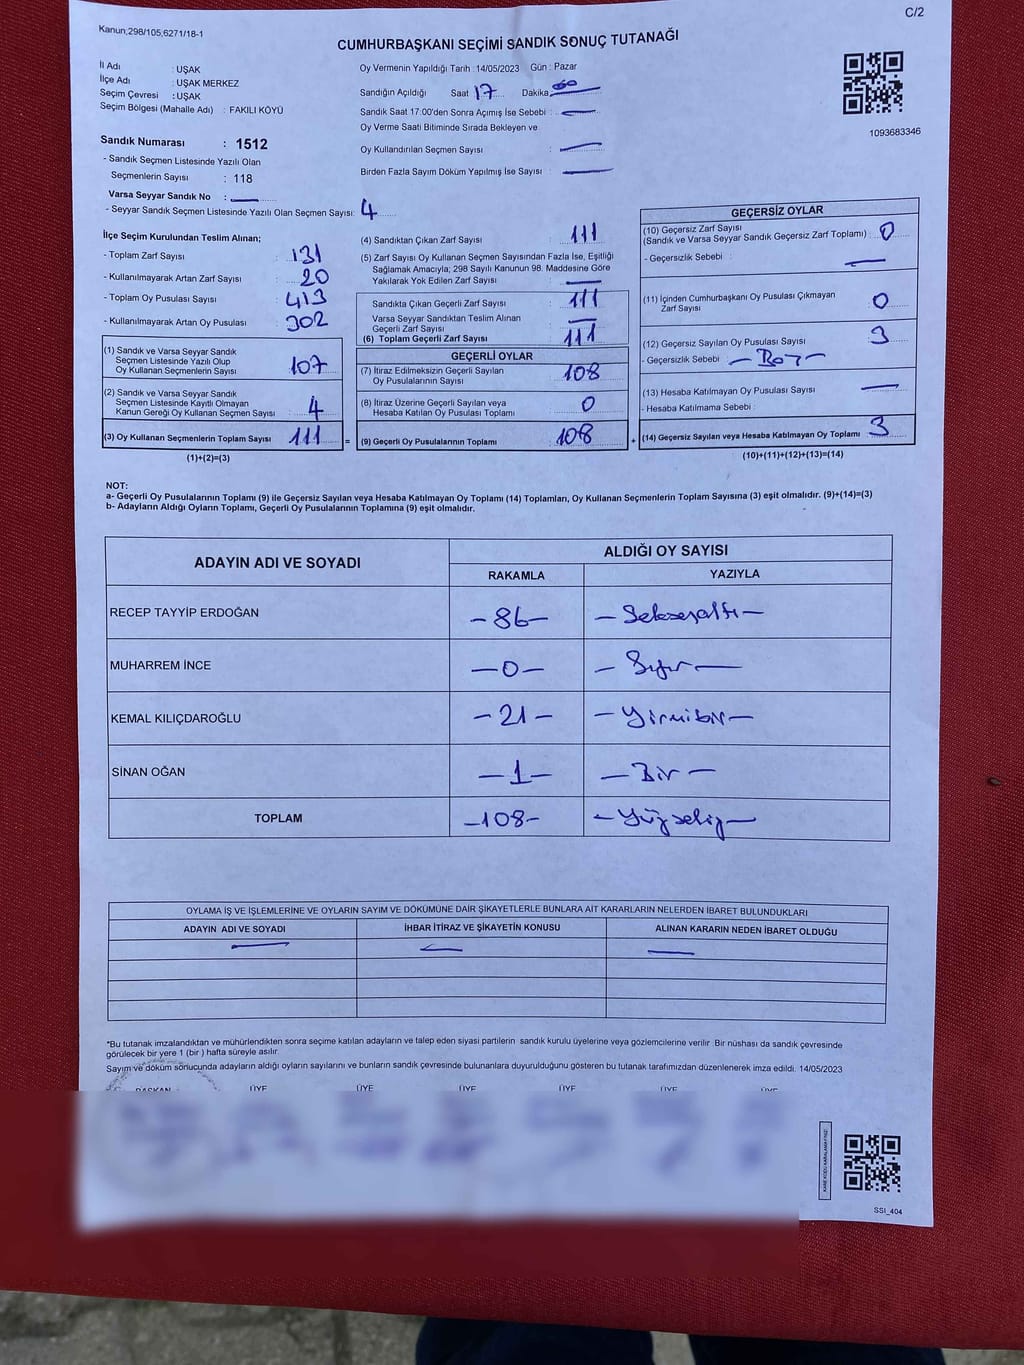 C/2
Kanun,298/105,6271/18-1
CUMHURBAŞKANI SEÇİMİ SANDIK SONUÇ TUTANAĞI
İl Adı : UŞAK
İlçe Adı : UŞAK MERKEZ
Seçim Çevresi : UŞAK
Seçim Bölgesi (Mahalle Adı) : FAKILI KÖYÜ
Oy Vermenin Yapıldığı Tarih : 14/05/2023 Gün : Pazar
Sandığın Açıldığı Saat 17 Dakika 00
Sandık Saat 17:00'den Sonra Açımış İse Sebebi : —
Oy Verme Saati Bitiminde Sırada Bekleyen ve
Oy Kullandırılan Seçmen Sayısı : —
Birden Fazla Sayım Döküm Yapılmış İse Sayısı : —
1093683346
Sandık Numarası : 1512
- Sandık Seçmen Listesinde Yazılı Olan
Seçmenlerin Sayısı : 118
Varsa Seyyar Sandık No : —
- Seyyar Sandık Seçmen Listesinde Yazılı Olan Seçmen Sayısı: 4
İlçe Seçim Kurulundan Teslim Alınan;
- Toplam Zarf Sayısı : 131
- Kullanılmayarak Artan Zarf Sayısı : 20
- Toplam Oy Pusulası Sayısı : 413
- Kullanılmayarak Artan Oy Pusulası : 302
(1) Sandık ve Varsa Seyyar Sandık
Seçmen Listesinde Yazılı Olup
Oy Kullanan Seçmenlerin Sayısı : 107
(2) Sandık ve Varsa Seyyar Sandık
Seçmen Listesinde Kayıtlı Olmayan
Kanun Gereği Oy Kullanan Seçmen Sayısı : 4
(3) Oy Kullanan Seçmenlerin Toplam Sayısı : 111 =
(1)+(2)=(3)
(4) Sandıktan Çıkan Zarf Sayısı : 111
(5) Zarf Sayısı Oy Kullanan Seçmen Sayısından Fazla İse, Eşitliği
Sağlamak Amacıyla; 298 Sayılı Kanunun 98. Maddesine Göre
Yakılarak Yok Edilen Zarf Sayısı : —
Sandıkta Çıkan Geçerli Zarf Sayısı : 111
Varsa Seyyar Sandıktan Teslim Alınan
Geçerli Zarf Sayısı : —
(6) Toplam Geçerli Zarf Sayısı : 111
GEÇERLİ OYLAR
(7) İtiraz Edilmeksizin Geçerli Sayılan
Oy Pusulalarının Sayısı : 108
(8) İtiraz Üzerine Geçerli Sayılan veya
Hesaba Katılan Oy Pusulası Toplamı : 0
(9) Geçerli Oy Pusulalarının Toplamı : 108 +
GEÇERSİZ OYLAR
(10) Geçersiz Zarf Sayısı
(Sandık ve Varsa Seyyar Sandık Geçersiz Zarf Toplamı) : 0
- Geçersizlik Sebebi : —
(11) İçinden Cumhurbaşkanı Oy Pusulası Çıkmayan
Zarf Sayısı : 0
(12) Geçersiz Sayılan Oy Pusulası Sayısı : 3
- Geçersizlik Sebebi : — Boş —
(13) Hesaba Katılmayan Oy Pusulası Sayısı : —
- Hesaba Katılmama Sebebi :
(14) Geçersiz Sayılan veya Hesaba Katılmayan Oy Toplamı : 3
(10)+(11)+(12)+(13)=(14)
NOT:
a- Geçerli Oy Pusulalarının Toplamı (9) ile Geçersiz Sayılan veya Hesaba Katılmayan Oy Toplamı (14) Toplamları, Oy Kullanan Seçmenlerin Toplam Sayısına (3) eşit olmalıdır. (9)+(14)=(3)
b- Adayların Aldığı Oyların Toplamı, Geçerli Oy Pusulalarının Toplamına (9) eşit olmalıdır.
ADAYIN ADI VE SOYADI ALDIĞI OY SAYISI
RAKAMLA YAZIYLA
RECEP TAYYİP ERDOĞAN —86— —Seksenaltı—
MUHARREM İNCE —0— —Sıfır—
KEMAL KILIÇDAROĞLU —21— —Yirmibir—
SİNAN OĞAN —1— —Bir—
TOPLAM —108— —Yüzsekiz—
OYLAMA İŞ VE İŞLEMLERİNE VE OYLARIN SAYIM VE DÖKÜMÜNE DAİR ŞİKAYETLERLE BUNLARA AİT KARARLARIN NELERDEN İBARET BULUNDUKLARI
ADAYIN ADI VE SOYADI İHBAR İTİRAZ VE ŞİKAYETİN KONUSU ALINAN KARARIN NEDEN İBARET OLDUĞU
— — —
*Bu tutanak imzalandıktan ve mühürlendikten sonra seçime katılan adayların ve talep eden siyasi partilerin sandık kurulu üyelerine veya gözlemcilerine verilir. Bir nüshası da sandık çevresinde
görülecek bir yere 1 (bir) hafta süreyle asılır.
Sayım ve döküm sonucunda adayların aldığı oyların sayılarını ve bunların sandık çevresinde bulunanlara duyurulduğunu gösteren bu tutanak tarafımızdan düzenlenerek imza edildi. 14/05/2023
BAŞKAN ÜYE ÜYE ÜYE ÜYE ÜYE ÜYE
SSI_404